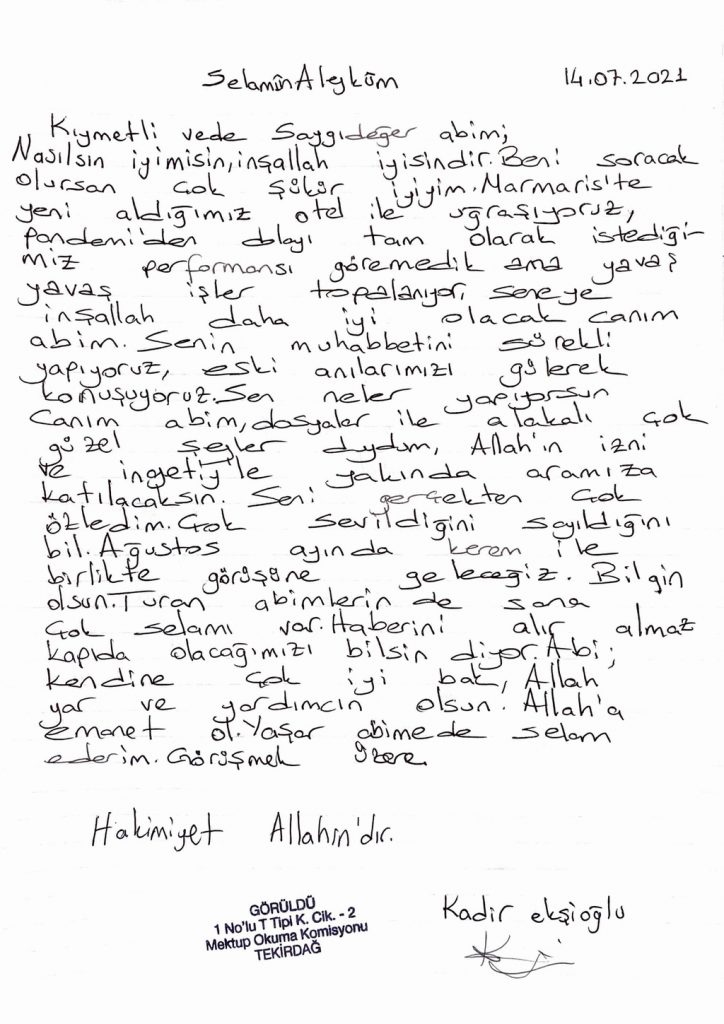 Selamin Aleyküm 14.07.2021
Kıymetli vede Saygıdeğer abim;
Nasılsın iyimisin, inşallah iyisindir. Beni soracak
olursan Çok şükür iyiyim. Marmaris'te
yeni aldığımız otel ile uğraşıyoruz,
Pandemi'den dolayı tam olarak istediği-
miz performansı göremedik ama yavaş
yavaş işler topalanıyor, seneye
inşallah daha iyi olacak canım
abim. Senin muhabbetini sürekli
yapıyoruz, eski anılarımızı gülerek
konuşuyoruz. Sen neler yapıyorsun
Canım abim, dosyalar ile alakalı çok
güzel şeyler duydum, Allah'ın izni
ve inayeti'yle yakında aramıza
katılacaksın. Seni gerçekten Çok
özledim. Çok sevildiğini sayıldığını
bil. Ağustos ayında kerem ile
birlikte görüşüne geleceğiz. Bilgin
olsun. Turan abimlerin de sana
Çok selamı var. Haberini alır almaz
kapıda olacağımızı bilsin diyor. Abi;
kendine çok iyi bak, Allah
yar ve yardımcın olsun. Allah'a
emanet ol. Yaşar abimede selam
ederim. Görüşmek üzere.
Hakimiyet Allahın'dır.
Kadir ekşioğlu
GÖRÜLDÜ
1 No'lu T Tipi K. Cik. - 2
Mektup Okuma Komisyonu
TEKİRDAĞ